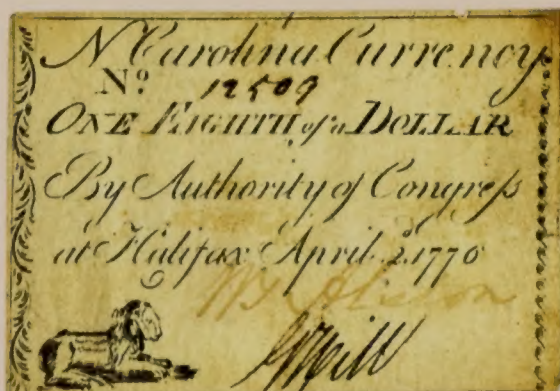 N Carolina Currency
No. 12509
ONE EIGHTH of a DOLLAR
By Authority of Congreſs
at Halifax April 2, 1776